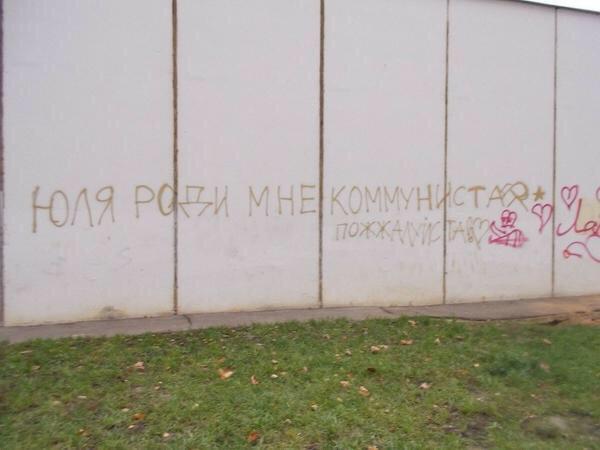 ЮЛЯ РОДИ МНЕ КОММУНИСТА
ПОЖЖАЛУЙСТА